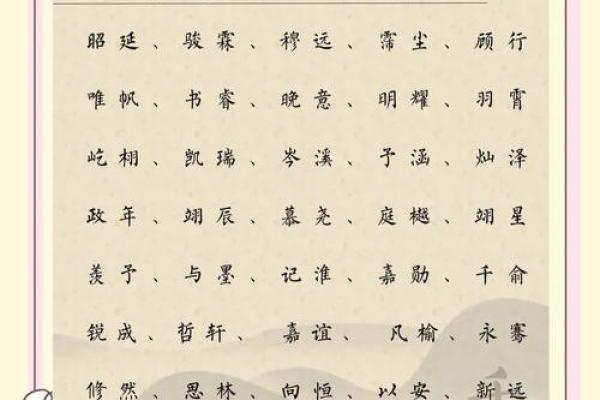 昭延、骏霖、穆远、霈尘、顾行
唯帆、书睿、晚意、明耀、羽霄
屹栩、凯瑞、岑溪、予涵、灿泽
政年、翊辰、慕尧、庭樾、翊星
羡予、与墨、记淮、嘉勋、千俞
锐成、哲轩、嘉谊、凡榆、永骞
修然、思林、向恒、以安、新远